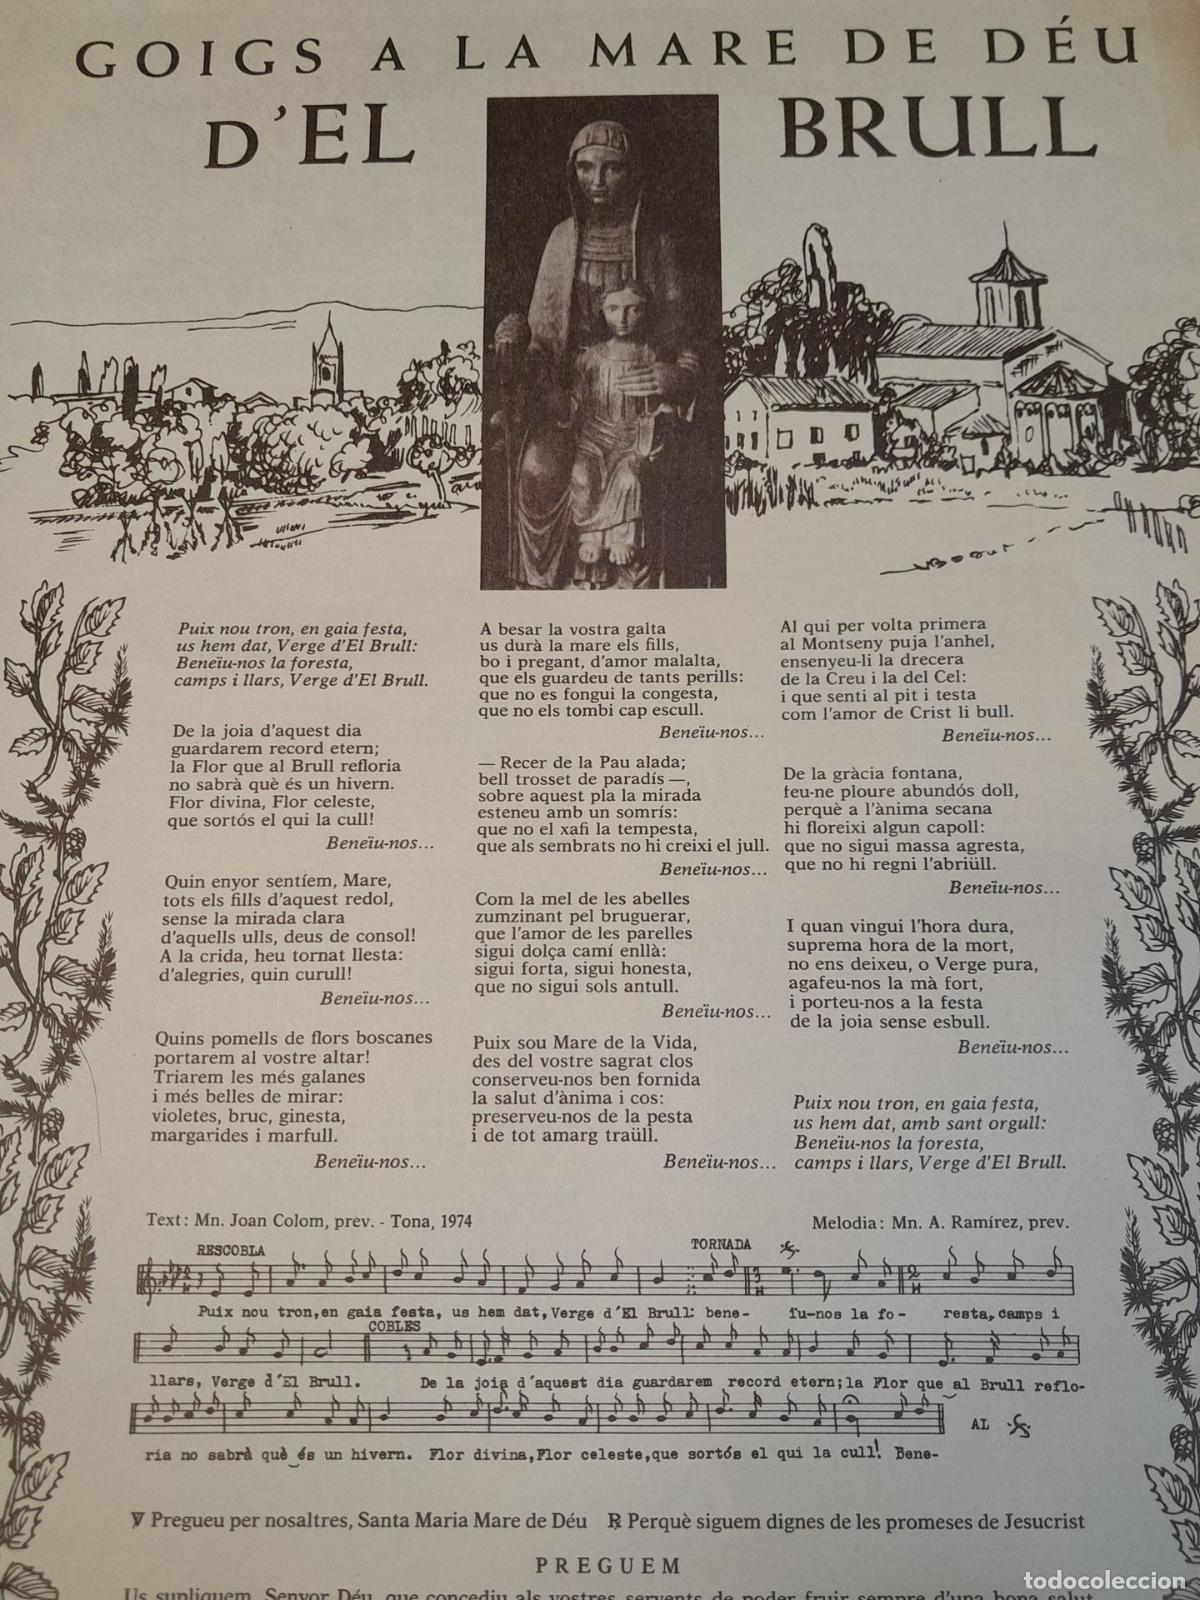 GOIGS A LA MARE DE DÉU
D'EL BRULL
Puix nou tron, en gaia festa,
us hem dat, Verge d'El Brull:
Beneïu-nos la foresta,
camps i llars, Verge d'El Brull.
De la joia d'aquest dia
guardarem record etern;
la Flor que al Brull refloria
no sabrà què és un hivern.
Flor divina, Flor celeste,
que sortós el qui la cull!
Beneïu-nos...
Quin enyor sentíem, Mare,
tots els fills d'aquest redol,
sense la mirada clara
d'aquells ulls, deus de consol!
A la crida, heu tornat llesta:
d'alegries, quin curull!
Beneïu-nos...
Quins pomells de flors boscanes
portarem al vostre altar!
Triarem les més galanes
i més belles de mirar:
violetes, bruc, ginesta,
margarides i marfull.
Beneïu-nos...
A besar la vostra galta
us durà la mare els fills,
bo i pregant, d'amor malalta,
que els guardeu de tants perills:
que no es fongui la congesta,
que no els tombi cap escull.
Beneïu-nos...
— Recer de la Pau alada;
bell trosset de paradís —,
sobre aquest pla la mirada
esteneu amb un somrís:
que no el xafi la tempesta,
que als sembrats no hi creixi el jull.
Beneïu-nos...
Com la mel de les abelles
zumzinant pel bruguerar,
que l'amor de les parelles
sigui dolça camí enllà:
sigui forta, sigui honesta,
que no sigui sols antull.
Beneïu-nos...
Puix sou Mare de la Vida,
des del vostre sagrat clos
conserveu-nos ben fornida
la salut d'ànima i cos:
preserveu-nos de la pesta
i de tot amarg traüll.
Beneïu-nos...
Al qui per volta primera
al Montseny puja l'anhel,
ensenyeu-li la drecera
de la Creu i la del Cel:
i que senti al pit i testa
com l'amor de Crist li bull.
Beneïu-nos...
De la gràcia fontana,
feu-ne ploure abundós doll,
perquè a l'ànima secana
hi floreixi algun capoll:
que no sigui massa agresta,
que no hi regni l'abriüll.
Beneïu-nos...
I quan vingui l'hora dura,
suprema hora de la mort,
no ens deixeu, o Verge pura,
agafeu-nos la mà fort,
i porteu-nos a la festa
de la joia sense esbull.
Beneïu-nos...
Puix nou tron, en gaia festa,
us hem dat, amb sant orgull:
Beneïu-nos la foresta,
camps i llars, Verge d'El Brull.
Text: Mn. Joan Colom, prev. - Tona, 1974
Melodia: Mn. A. Ramírez, prev.
RESCOBLA TORNADA
Puix nou tron,en gaia festa, us hem dat,Verge d'El Brull: bene- ïu-nos la fo- resta,camps i
COBLES
llars, Verge d'El Brull. De la joia d'aquest dia guardarem record etern;la Flor que al Brull reflo-
AL
ria no sabrà què és un hivern. Flor divina,Flor celeste,que sortós el qui la cull! Bene-
℣ Pregueu per nosaltres, Santa Maria Mare de Déu ℟ Perquè siguem dignes de les promeses de Jesucrist
PREGUEM
Us supliquem, Senyor Déu, que concediu als vostres servents de poder fruir sempre d'una bona salut
todocoleccion